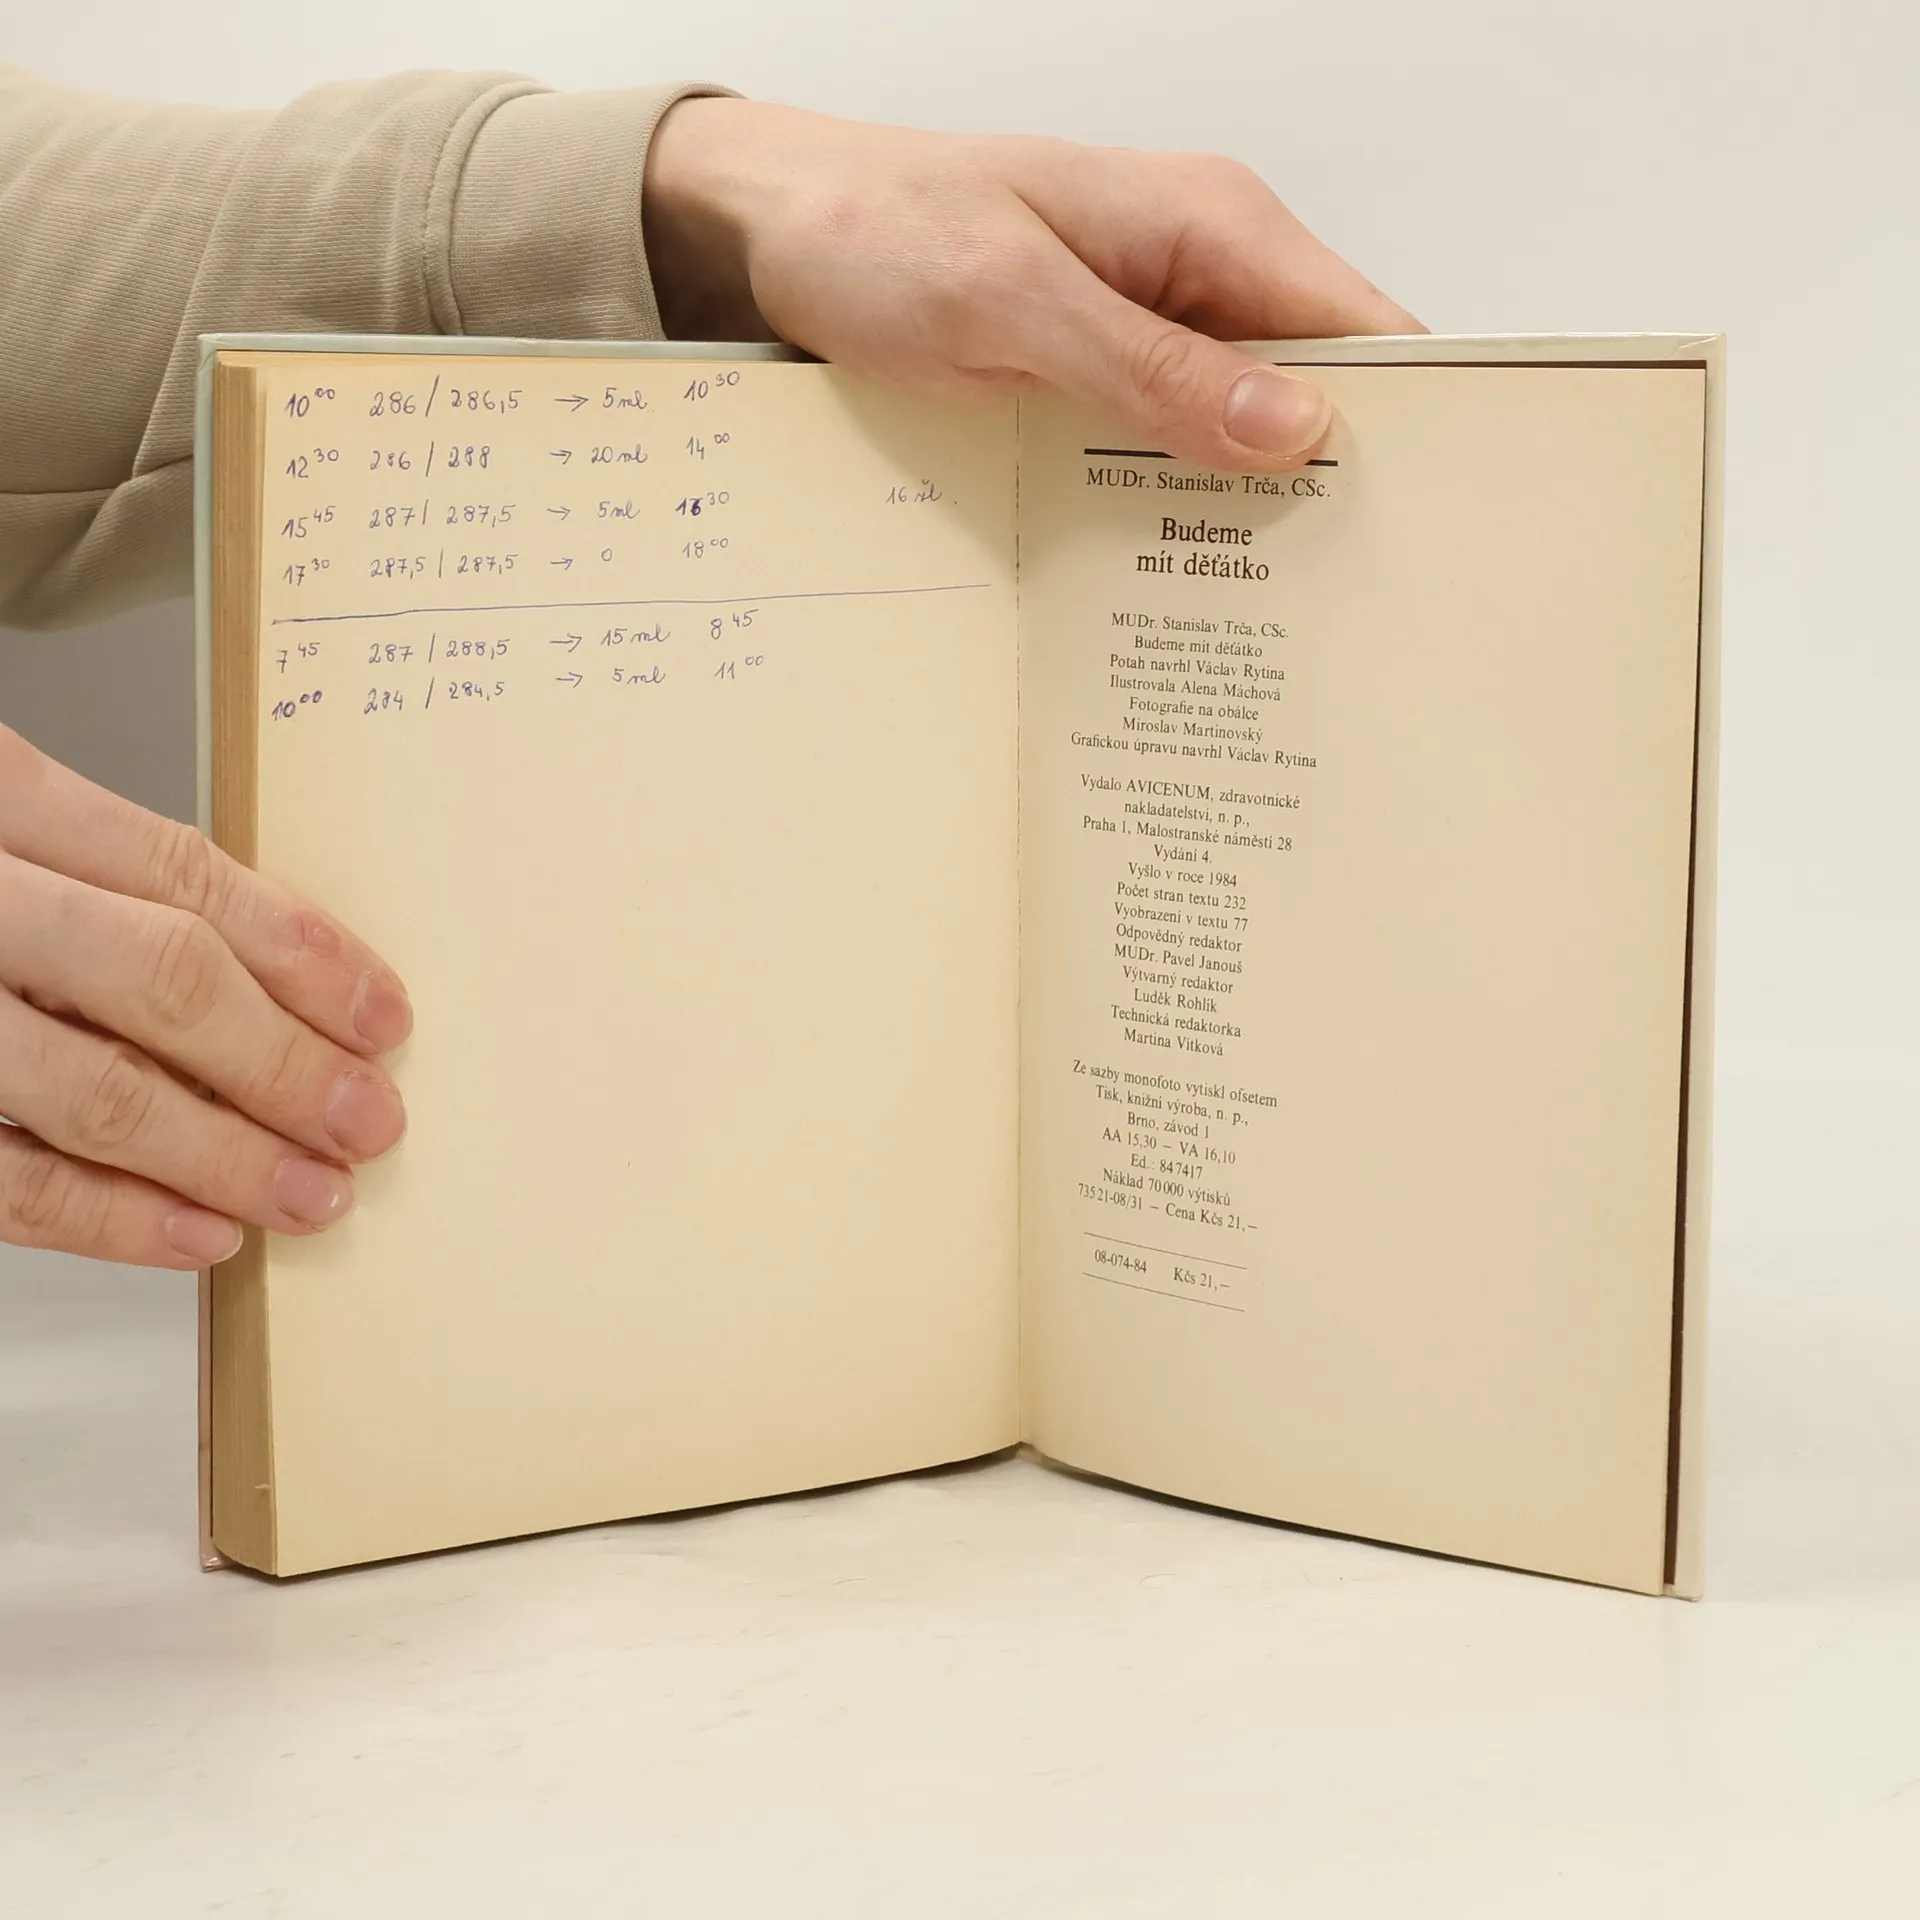 10⁰⁰ 286 / 286,5 → 5 ml 10³⁰
12³⁰ 286 / 288 → 20 ml 14⁰⁰
15⁴⁵ 287 / 287,5 → 5 ml 16³⁰
16
17³⁰ 287,5 / 287,5 → 0 18⁰⁰
7⁴⁵ 287 / 288,5 → 15 ml 8⁴⁵
10⁰⁰ 284 / 284,5 → 5 ml 11⁰⁰
MUDr. Stanislav Trča, CSc.
Budeme
mít děťátko
MUDr. Stanislav Trča, CSc.
Budeme mít děťátko
Potah navrhl Václav Rytina
Ilustrovala Alena Máchová
Fotografie na obálce
Miroslav Martinovský
Grafickou úpravu navrhl Václav Rytina
Vydalo AVICENUM, zdravotnické
nakladatelství, n. p.,
Praha 1, Malostranské náměstí 28
Vydání 4.
Vyšlo v roce 1984
Počet stran textu 232
Vyobrazení v textu 77
Odpovědný redaktor
MUDr. Pavel Janouš
Výtvarný redaktor
Luděk Rohlík
Technická redaktorka
Martina Vítková
Ze sazby monofoto vytiskl ofsetem
Tisk, knižní výroba, n. p.,
Brno, závod 1
AA 15,30 – VA 16,10
Ed.: 847417
Náklad 70 000 výtisků
735 21-08/31 – Cena Kčs 21,–
08-074-84 Kčs 21,–